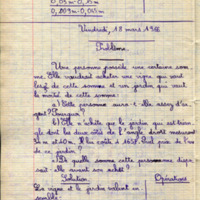 0,03 m - 0,15 m
0,209 m - 0,045 m
Vendredi, 18 mars 1966
Problème
Une personne possède une certaine som
me. Elle voudrait acheter une vigne qui vaut
les 4/5 de cette somme et un jardin qui vaut
le de cette somme :
a) Cette personne aura-t-elle assez d'ar
gent? Pourquoi?
b) Elle n'achète que le jardin qui est trian
gle dont les deux côtés de l'angle droit mesurent
m et 40 m. Il coûte à 165 F. Quel prix de l'a
de ce jardin?
c) De quelle somme cette personne dispo
sait-elle avant son achat?
Solution Opérations
La vigne et le jardin valent en
semble